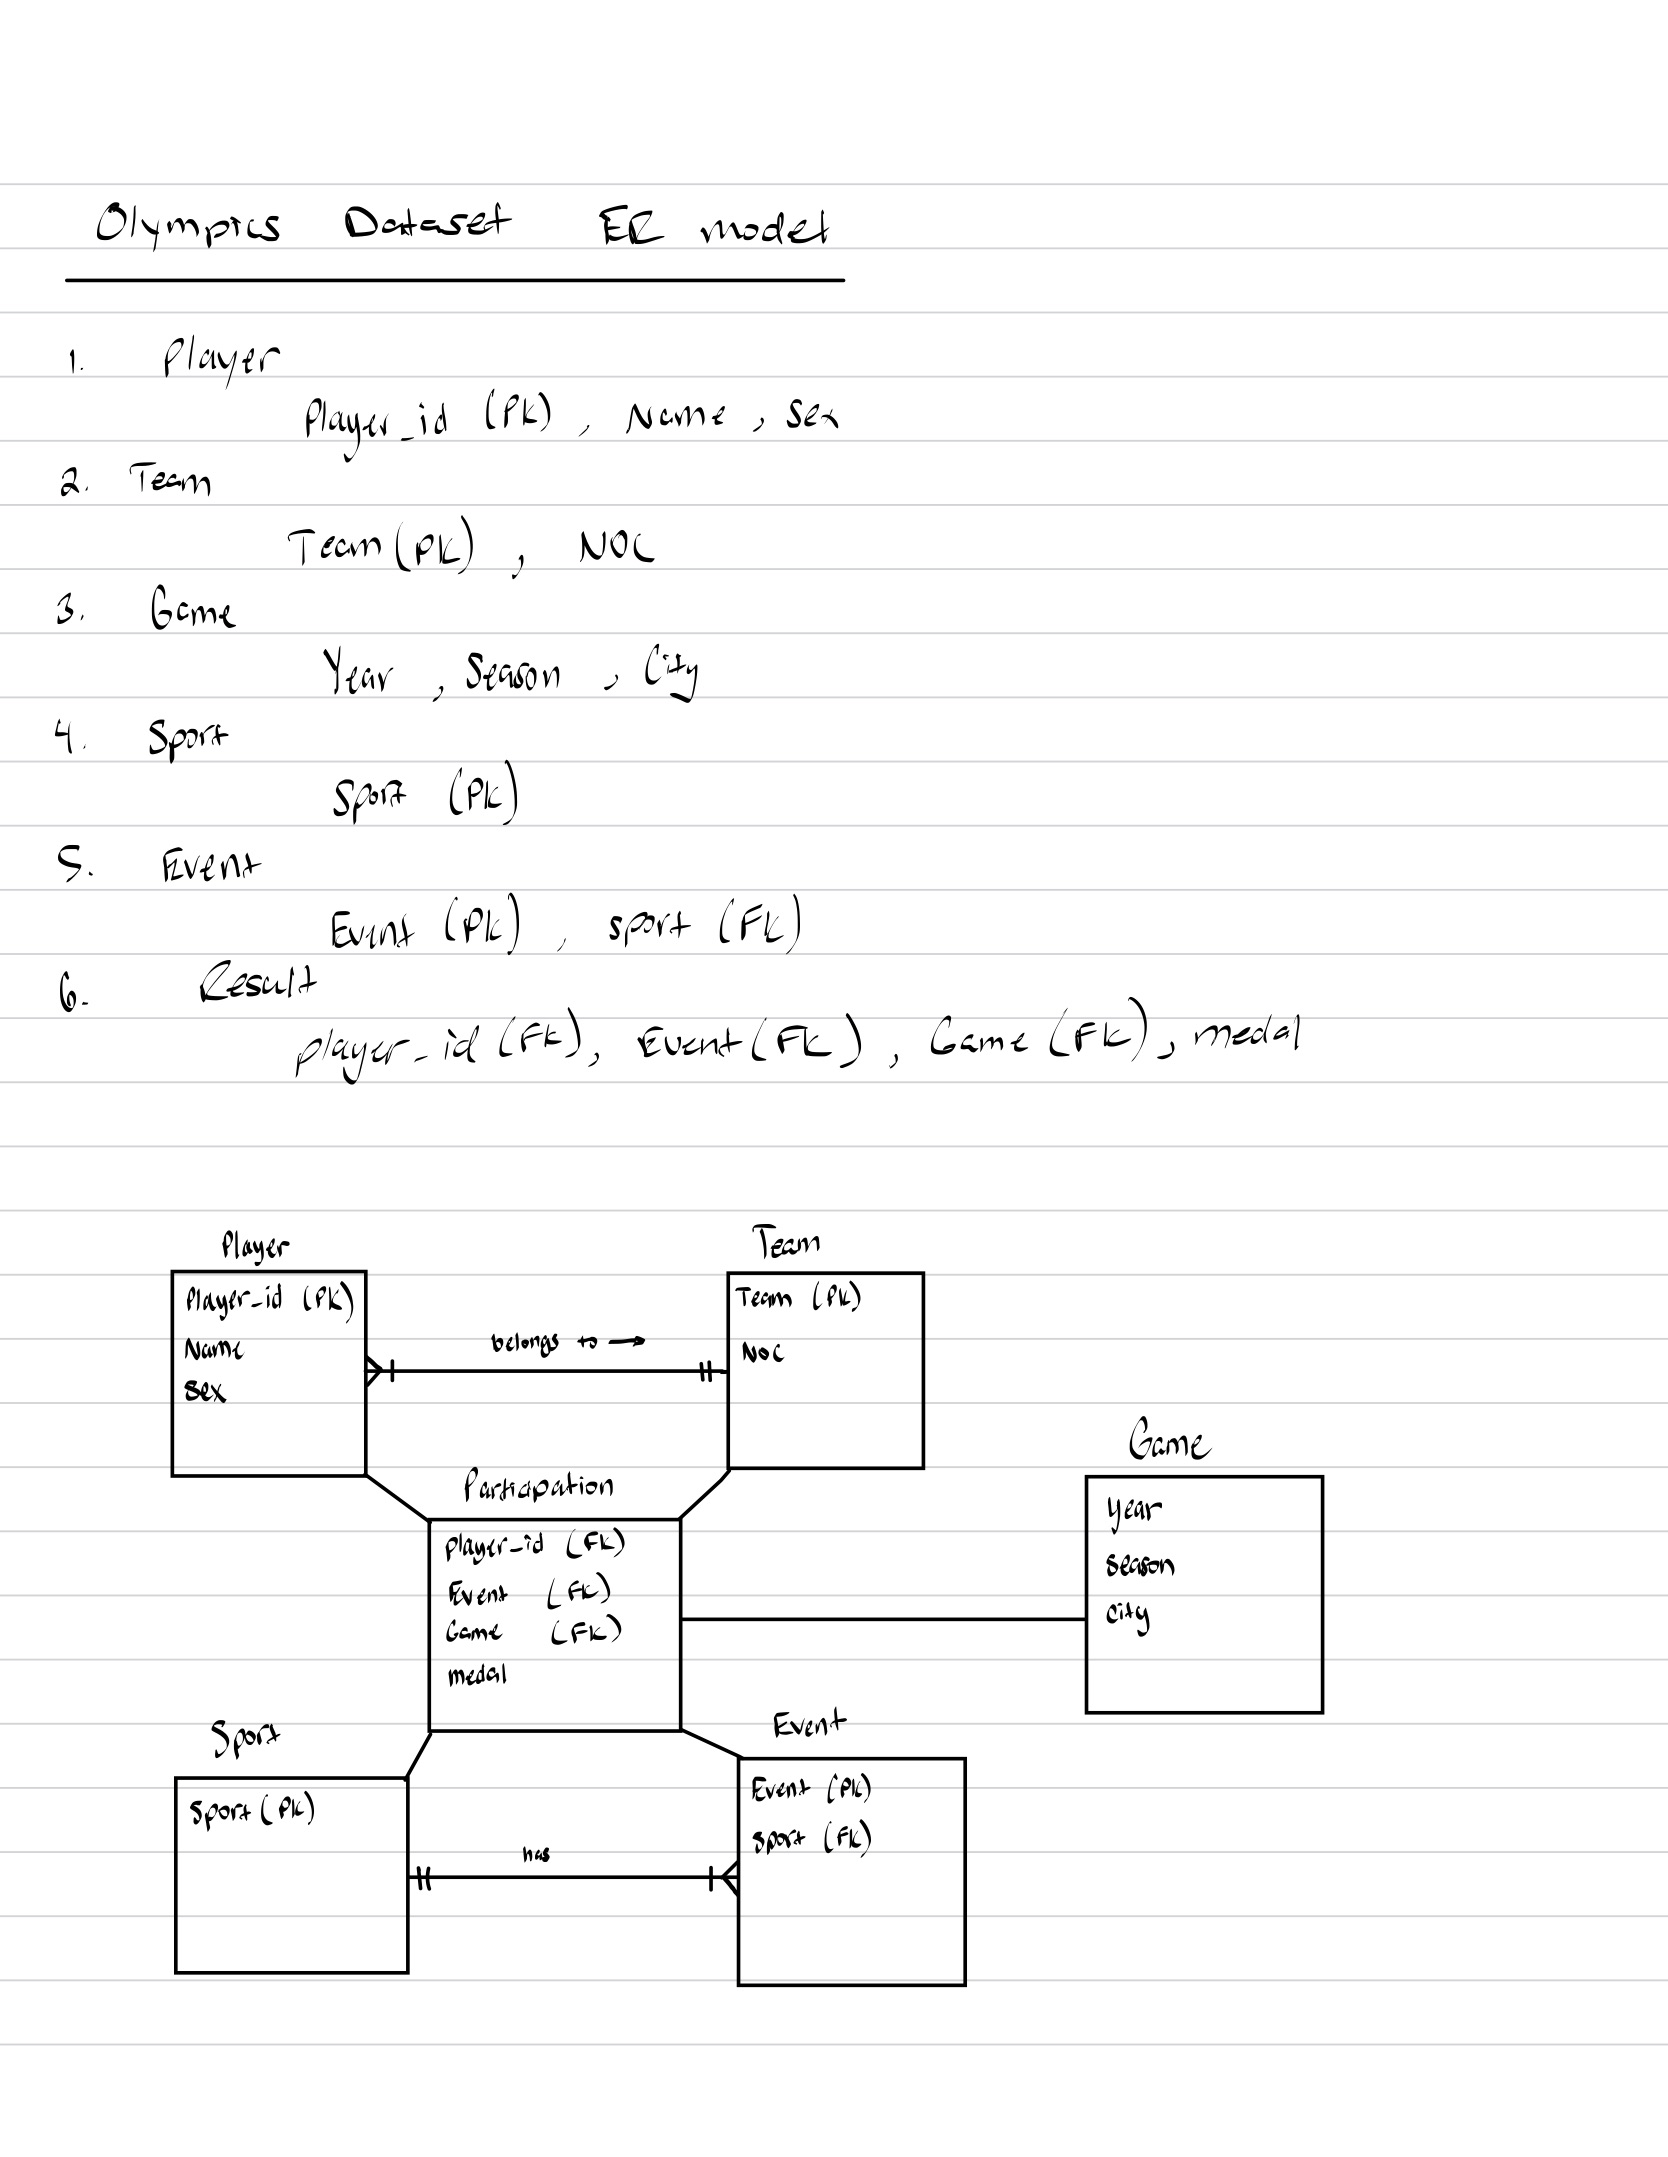 Olympics Dataset ER model
1. Player
Player_id (PK), Name, Sex
2. Team
Team (PK), NOC
3. Game
Year, Season, City
4. Sport
Sport (PK)
5. Event
Event (PK), sport (FK)
6. Result
player_id (FK), Event (FK), Game (FK), medal
Player
Player_id (PK)
Name
Sex
belongs to →
Team
Team (PK)
NOC
Participation
player_id (FK)
Event (FK)
Game (FK)
medal
Game
Year
Season
City
Sport
Sport (PK)
has
Event
Event (PK)
Sport (FK)